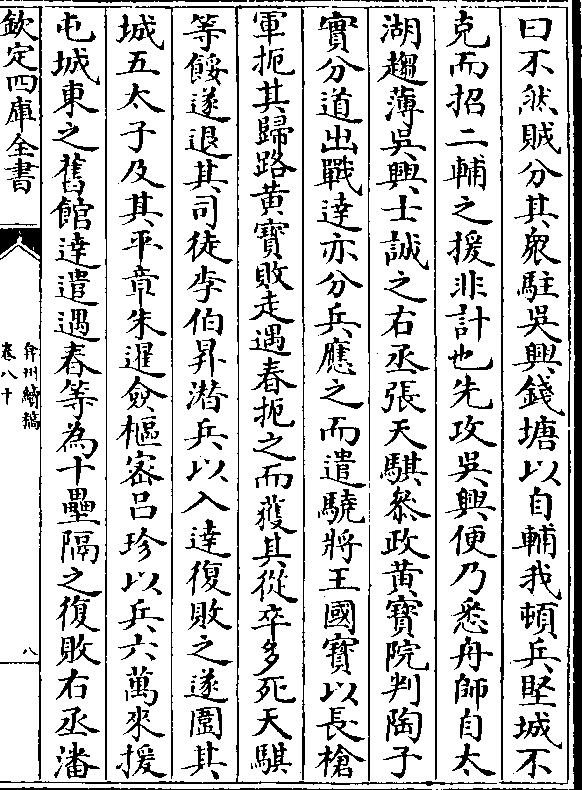 曰不然賊分其衆駐吳興錢塘以自輔我頓兵堅城不
克而招二輔之援非計也先攻吳興便乃悉舟師自太
湖趨薄吳興士誠之右丞張天騏叅政黄寳院判陶子
實分道出戰達亦分兵應之而遣驍將王國寳以長槍
軍扼其歸路黄寳敗走遇春扼之而獲其從卒多死天騏
等餒遂退其司徒李伯昇潜兵以入達復敗之遂圍其
城五太子及其平章朱暹僉樞宻吕珍以兵六萬來援
屯城東之舊館達遣遇春等為十壘隔之復敗右丞潘
欽定四庫全書
弇州續稿
卷八十
八